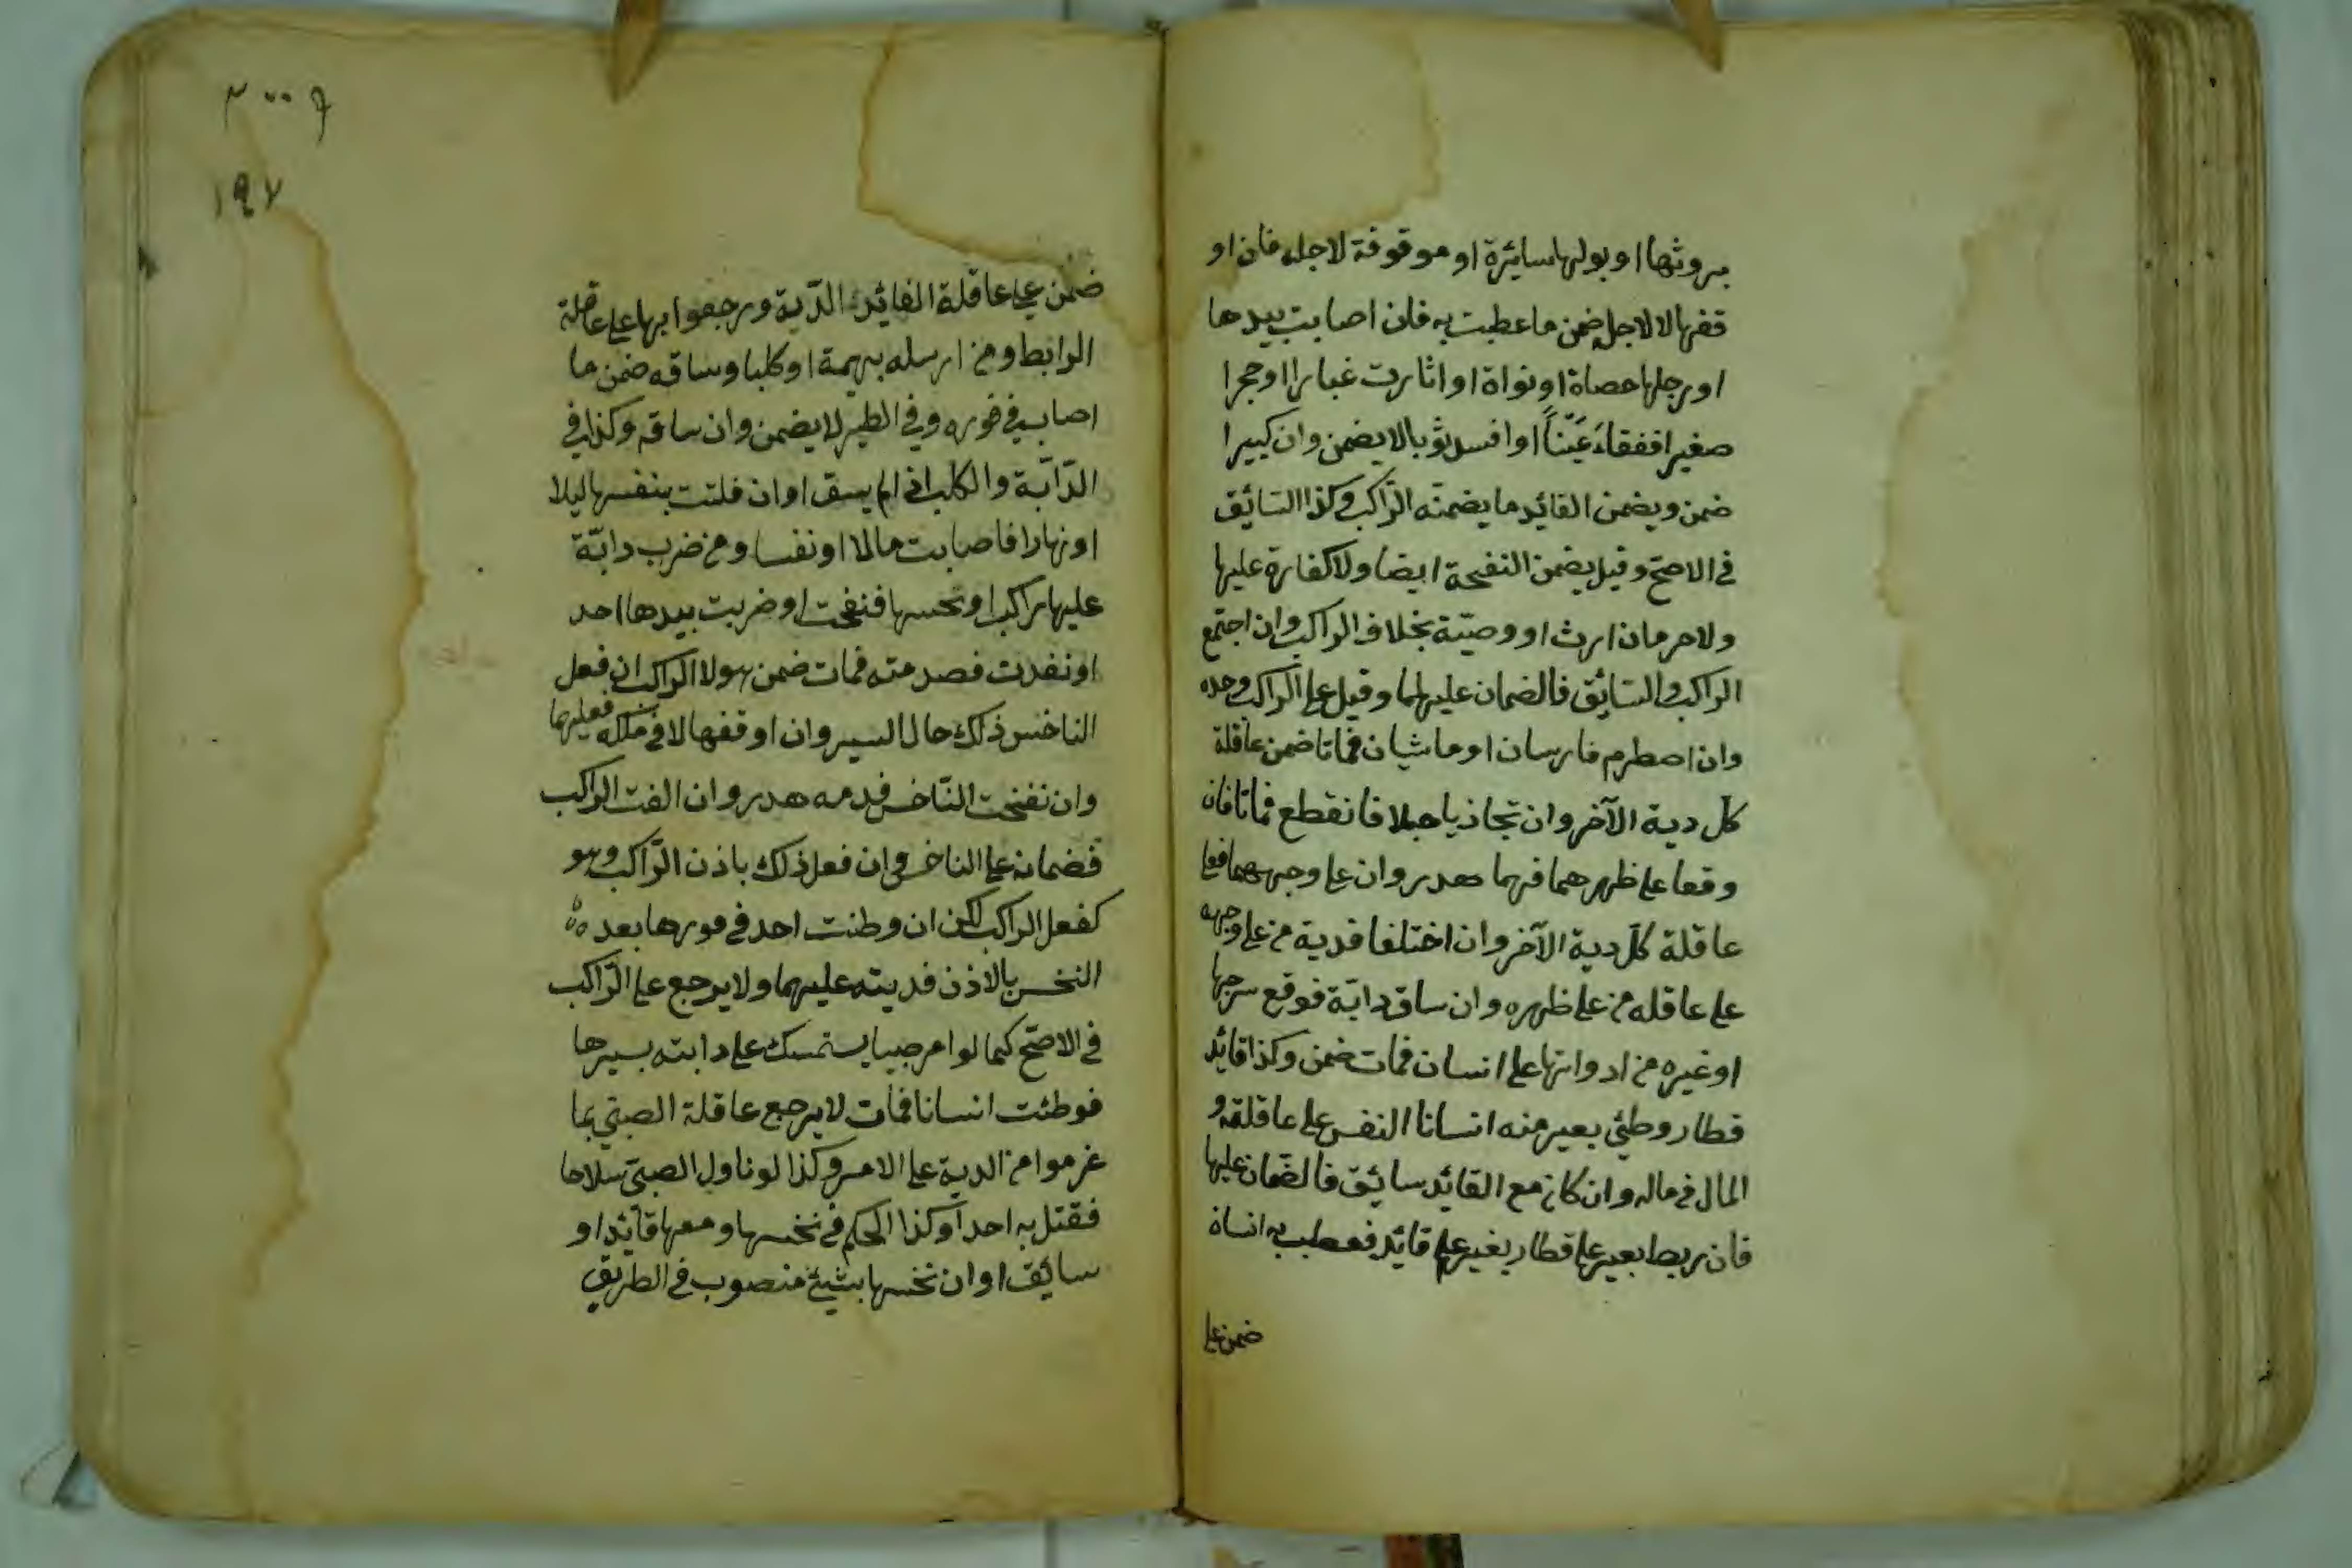 بروثها او بولها سائرة او موقوفة لاجله فان او
قفها لا لاجله ضمن ما عطبت به فان اصابت بيدها
او رجلها حصاة او نواة او اثارت غبارا او حجرا
صغيرا ففقاء عينا او افسد ثوبا لا يضمن وان كبيرا
ضمن ويضمن القائد ما يضمنه الراكب وكذا السائق
في الاصح وقيل يضمن النفحة ايضا ولا كفارة عليها
ولا حرمان ارث او وصية بخلاف الراكب وان اجتمع
الراكب والسائق فالضمان عليهما وقيل على الراكب وحده
وان اصطرم فارسان او ماشيان فماتا ضمن عاقلة
كل دية الآخر وان تجاذبا حبلا فانقطع فماتا فان
وقعا على ظهرهما فهما هدر وان على وجههما فعلى
عاقلة كل دية الآخر وان اختلفا فدية من على وجهه
على عاقله من على ظهره وان ساق دابة فوقع سرجها
او غيره من ادواتها على انسان فمات ضمن وكذا قائد
قطار وطئ بعير منه انسانا النفس على عاقلته و
المال في ماله وان كان مع القائد سائق فالضمان عليها
فان ربط بعير على قطار بغير علم قائد فعطب به انسان
ضمن على
٢٠٠٦
١٩٧
ضمن على عاقلة القائد الدية ورجعوا بها على عاقلة
الرابط ومن ارسله بهيمة او كلبا وساقه ضمن ما
اصاب في فوره وفي الطير لا يضمن وان ساقه وكذا في
الدابة والكلب اذا لم يسق او ان فلتت بنفسها ليلا
او نهارا فاصابت مالا او نفسا ومن ضرب دابة
عليها راكب او نخسها فنفحت او ضربت بيدها احد
او نفدت فصدمته فمات ضمن هو لا الراكب ان فعل
الناخس ذلك حال السير وان اوقفها لا في ملكه فعليهما
وان نفحت الناخس فدمه هدر وان القت الراكب
فضمانه على الناخس وان فعل ذلك باذن الراكب وهو
كفعل الراكب لكن ان وطئت احد في فورها بعد
النخس بالاذن فديته عليهما ولا يرجع على الراكب
في الاصح كما لو امر صبيا يستمسك على دابته بسيرها
فوطئت انسانا فمات لا يرجع عاقلة الصبي بما
غرموا من الدية على الامر وكذا لو ناول الصبي سلاحا
فقتل به احدا وكذا الحكم في نخسها ومعها قائد او
سائق او ان نخسها بشيئ منصوب في الطريق